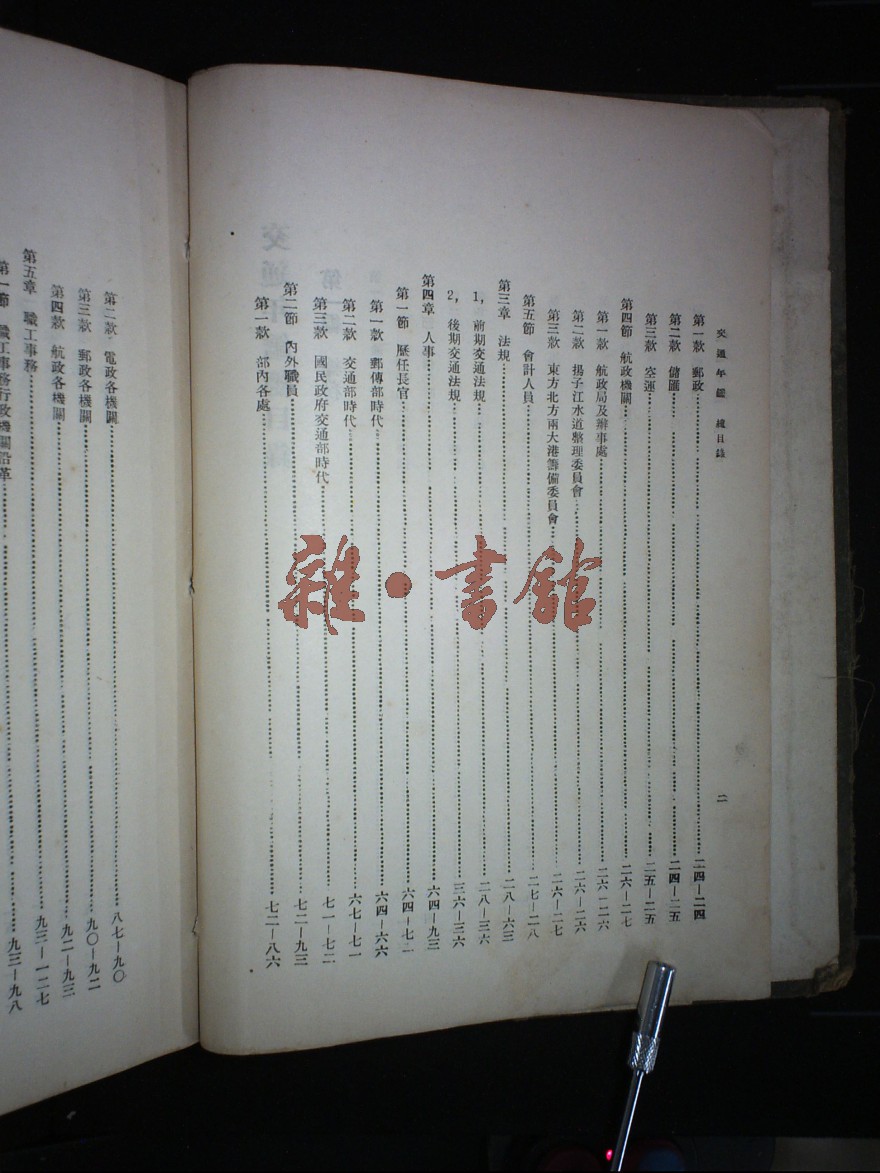 交通年鑑 總目錄
二
第一款 郵政……二四—二四
第二款 儲匯……二四—二五
第三款 空運……二五—二五
第四節 航政機關……二六—二七
第一款 航政局及辦事處……二六—二六
第二款 揚子江水道整理委員會……二六—二六
第三款 東方北方兩大港籌備委員會……二六—二七
第五節 會計人員……二七—二八
第三章 法規……二八—六三
1, 前期交通法規……二八—三六
2, 後期交通法規……三六—三六
第四章 人事……六四—九三
第一節 歷任長官……六四—七二
第一款 郵傳部時代……六四—六六
第二款 交通部時代……六七—七一
第三款 國民政府交通部時代……七一—七二
第二節 內外職員……七二—九三
第一款 部內各處……七二—八六
第二款 電政各機關……八七—九〇
第三款 郵政各機關……九〇—九二
第四款 航政各機關……九二—九三
第五章 職工事務……九三—一二七
第一節 職工事務行政機關沿革……九三—九八
雜·書館